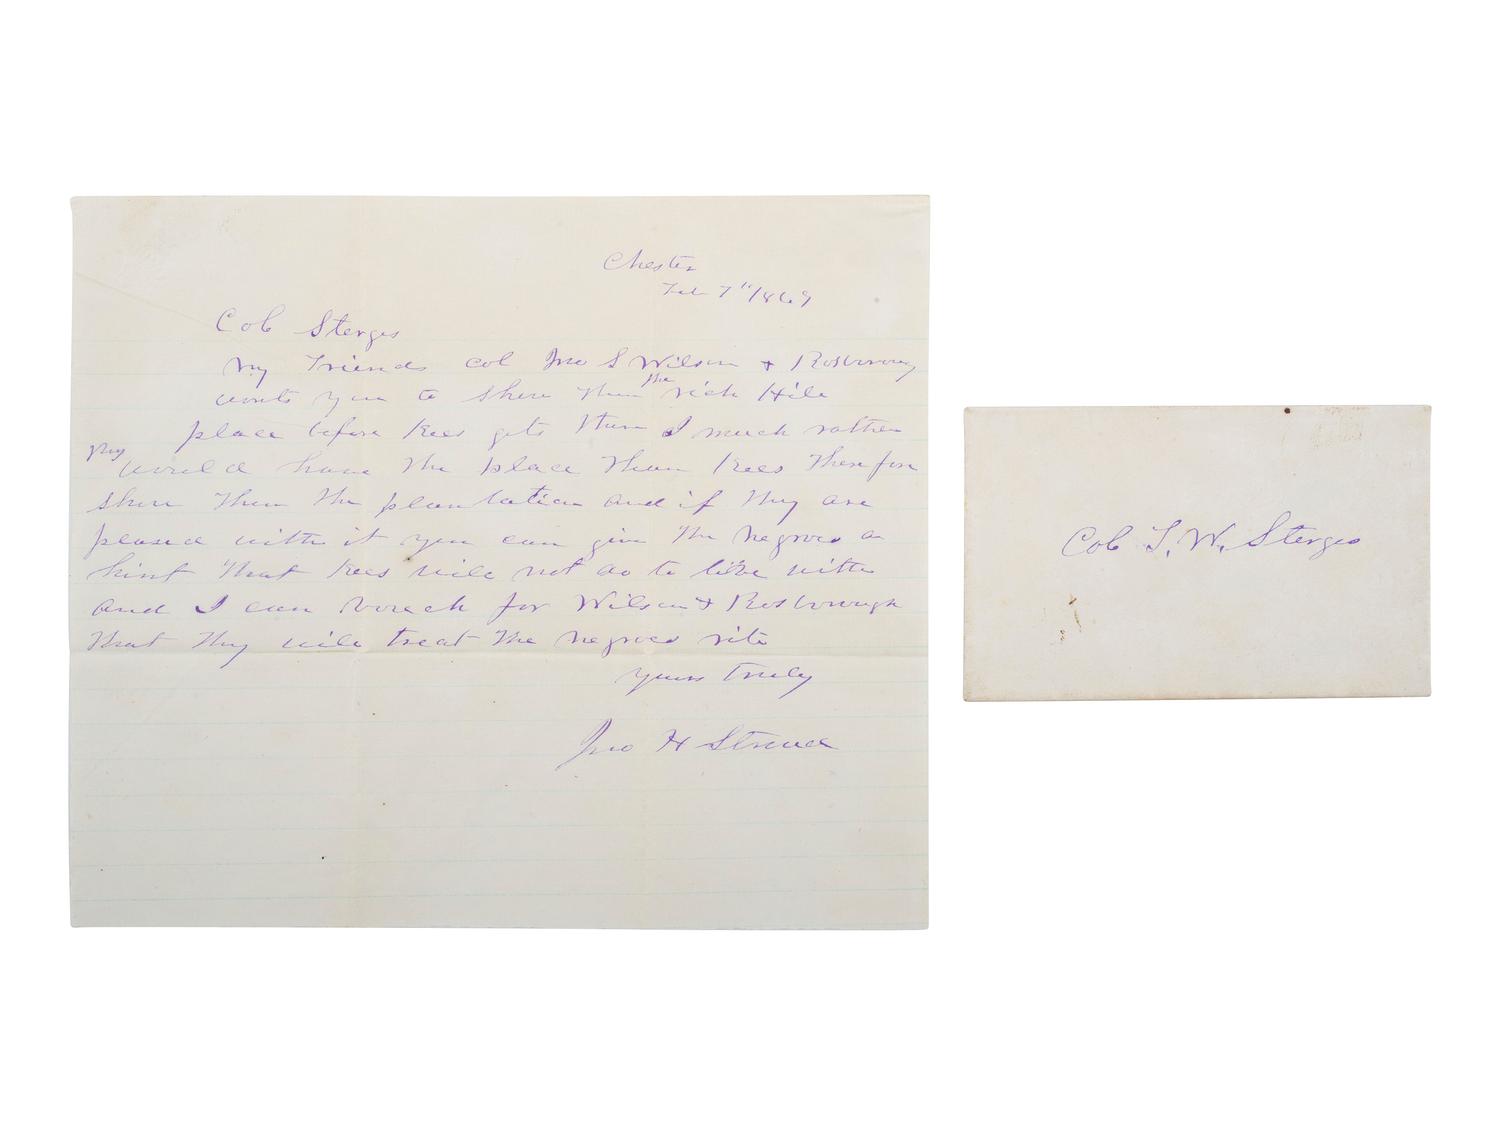 Chester
Feb 7" /1869
Col Sterges
My Friends Col Jno S Wilson & Rosborough
wonts you to shew Them the rich Hill
place before Kees gets Thare I much rather
They would have The place Than Kees Therefore
shew Them The plantation and if They are
pleased with it you can give The negroes a
hint That Kees will not do to live with
and I can vouch for Wilson & Rosborough
That They will treat The negroes rite
yours truly
Jno H
Col S. W. Sterges